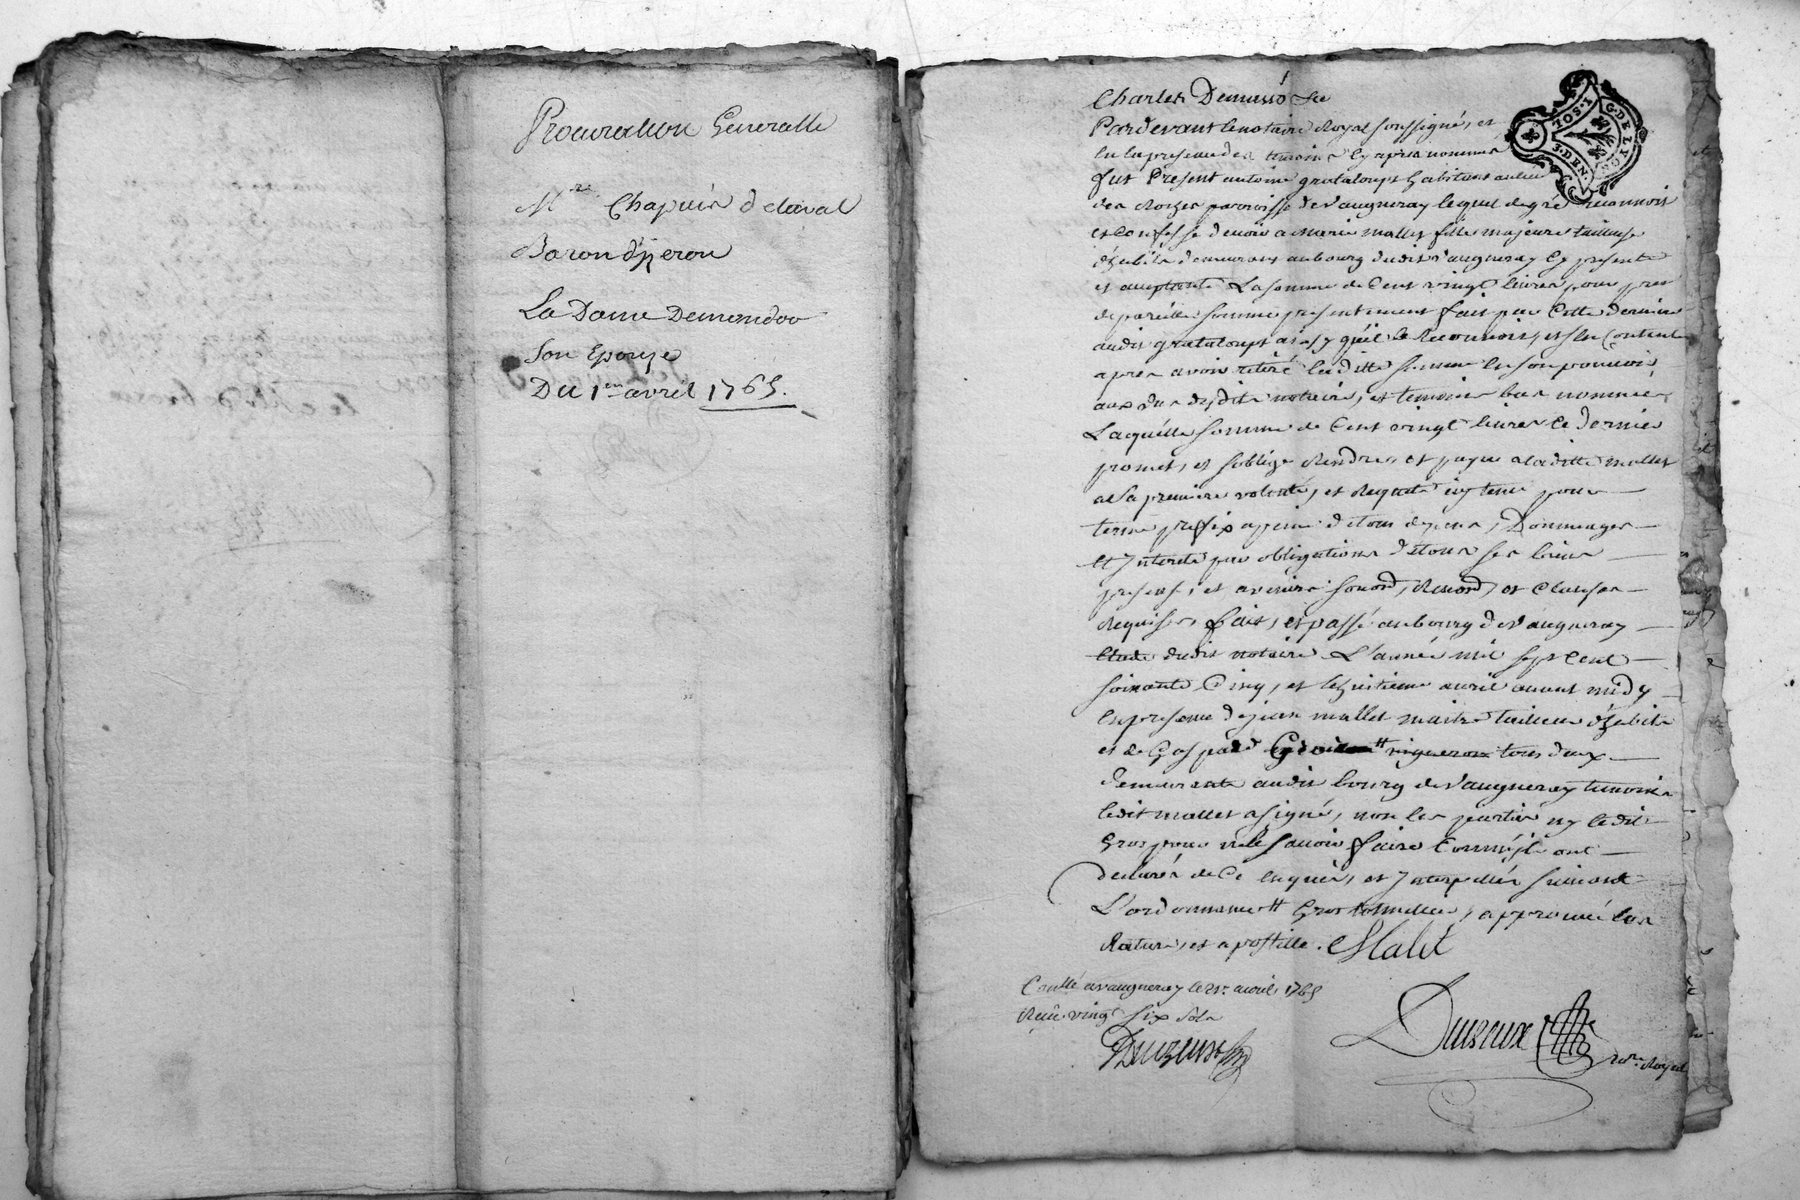 Procuration Generalle
Mre Chapuis delaval
Baron d'yzeron
La Dame
Son Epouze
Du 1er avril 1765.
Charles
Pardevant le notaire Royal soussigné, et
en la presence des temoins cy apres nommés
fut Present antoine grataloup habitant au lieu
des parroisse de vaugneray lequel de gré reconnoit
et confesse devoir a marie mallet fille majeure tailleuse
d'habits demeurant au bourg dudit vaugneray cy presente
et acceptante La somme de Cent vingt livres pour prest
de pareille somme presentement fait par Cette derniere
audit grataloup ainsy qu'il le Reconnoit, et s'en Contente
apres avoir retiré laditte somme en son pouvoir
aux vus dudit notaire, et temoins bas nommés,
Laquelle somme de Cent vingt livres ce dernier
promet, et s'oblige Rendre, et payer a laditte mallet
a sa premiere volonté, et Requete pour
terme prefix a peine de tous depens, Dommages
et Interets par obligations de tous ses biens
presents, et avenirs et clauses
Requises, fait, et passé au bourg de vaugneray
Etude dudit notaire L'année mil sept Cent
soixante Cinq, et le huitieme avril avant midy
en presence de jean mallet maitre tailleur d'habits
et de Gaspard # vigneron tous deux
demeurants audit bourg de vaugneray temoins
ledit mallet a signé, non les parties ny ledit
Gros pour ne le savoir faire Comme ils ont
declarés de Ce enquis, et Interpellés suivant
L'ordonnance # Gros approuvé les
Rature, et apostille. Malet
Conllé a vaugneray le 21e avril 1765
Reçu vingt six sols
1.SOL.
G.DE LYON
8.DEN.